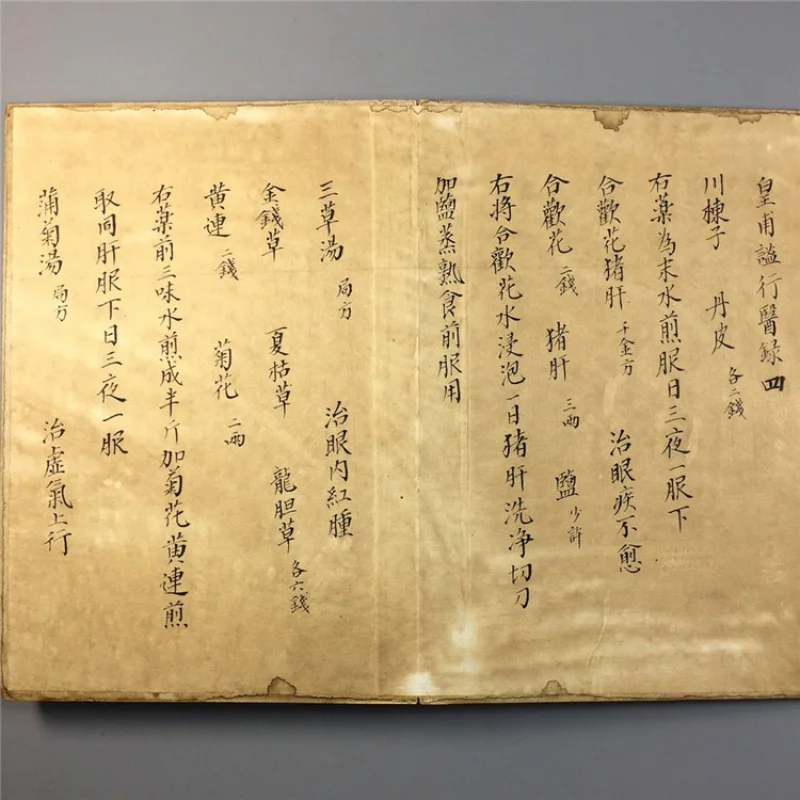 皇甫謐行醫錄四
川楝子 丹皮 各二錢
右藥為末水煎服日三夜一服下
合歡花猪肝 千金方 治眼疾不愈
合歡花 二錢 猪肝 三兩 鹽 少許
右将合歡花水浸泡一日猪肝洗净切刀
加鹽蒸熟食前服用
三草湯 局方 治眼内紅腫
金錢草 夏枯草 龍胆草 各六錢
黄連 二錢 菊花 二兩
右藥前三味水煎成半斤加菊花黄連煎
取同肝服下日三夜一服
蒲菊湯 局方 治虚氣上行